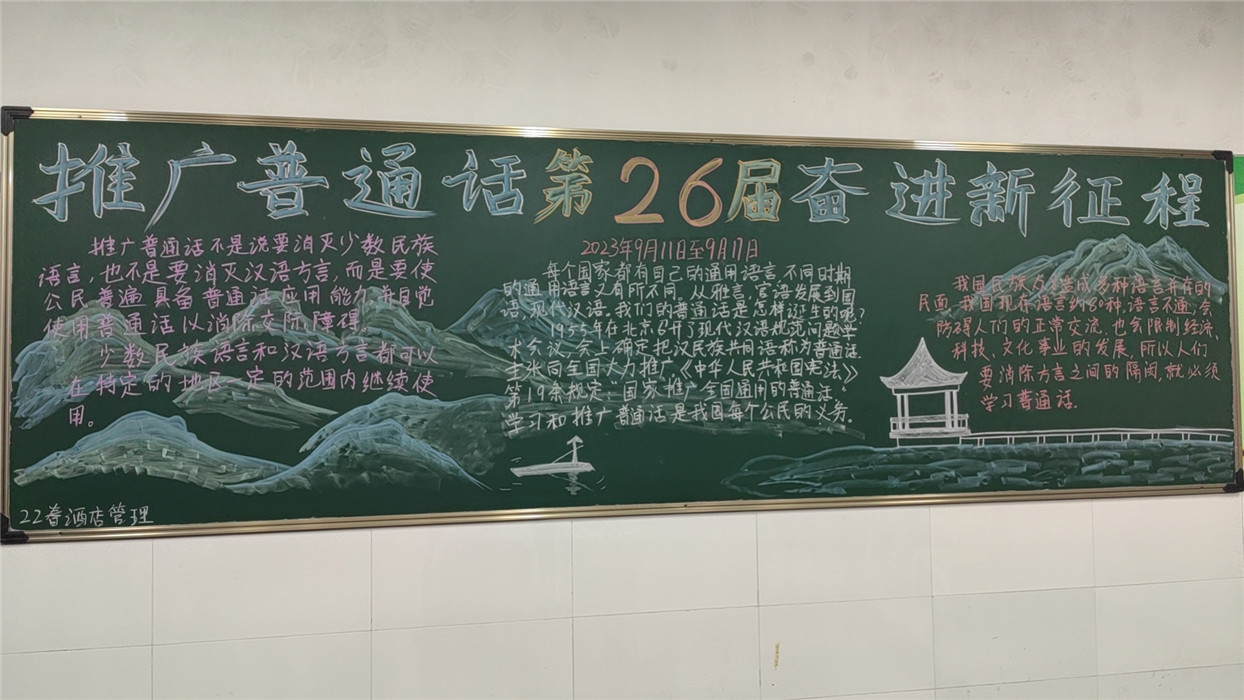 推广普通话第26届奋进新征程
推广普通话不是说要消灭少数民族
语言,也不是要消灭汉语方言,而是要使
公民普遍具备普通话应用能力,并自觉
使用普通话以消除交际障碍。
少数民族语言和汉语方言都可以
在特定的地区一定的范围内继续使
用。
2023年9月11日至9月17日
每个国家都有自己的通用语言,不同时期
的通用语言又有所不同。从雅言、官语发展到国
语、现代汉语。我们的普通话是怎样诞生的呢?
1955年在北京召开了现代汉语规范问题学
术会议,会上确定把汉民族共同语称为普通话.
主张向全国大力推广,《中华人民共和国宪法》
第19条规定:"国家推广全国通用的普通话."
学习和推广普通话是我国每个公民的义务。
我国民族 造成多种语言并存的
民面,我国现有语言约80种,语言不通,会
防碍人们的正常交流,也会限制经济、
科技、文化事业的发展,所以人们
要消除方言之间的隔阂,就必须
学习普通话.
22春酒店管理